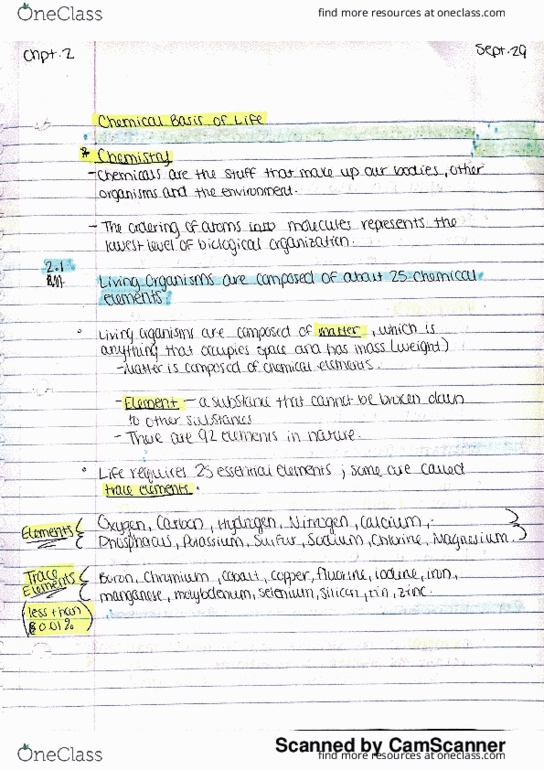 OneClass
find more resources at oneclass.com
Chpt.2
Sept.29
Chemical Basis of Life
* Chemistry
- Chemicals are the stuff that make up our bodies, other
organisms and the environment.
- The ordering of atoms into molecules represents the
lowest level of biological organization.
2.1
Living Organisms are composed of about 25 chemical
elements.
• Living organisms are composed of matter, which is
anything that occupies space and has mass (weight)
- Matter is composed of chemical elements.
- Element - a substance that cannot be broken down
to other substances
- There are 92 elements in nature.
• Life requires 25 essential elements ; some are called
trace elements.
Elements { Oxygen, Carbon, Hydrogen, Nitrogen, Calcium,
Phosphorus, Potassium, Sulfur, Sodium, Chlorine, Magnesium. }
Trace Elements { Boron, Chromium, Cobalt, copper, fluorine, iodine, iron,
manganese, molybdenum, selenium, silicon, tin, zinc.
(less than
0.01%)
Scanned by CamScanner
OneClass
find more resources at oneclass.com